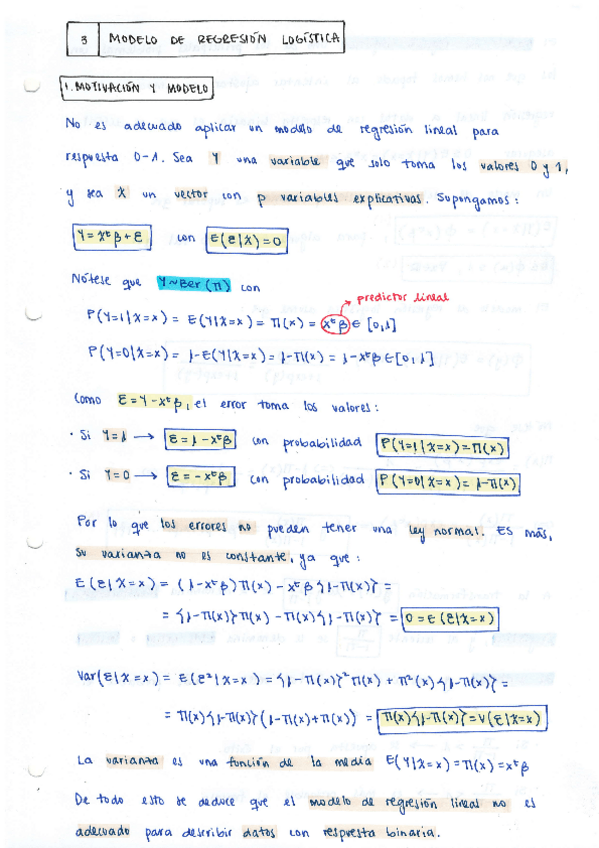 3 MODELO DE REGRESIÓN LOGÍSTICA
1. MOTIVACIÓN Y MODELO
No es adecuado aplicar un modelo de regresión lineal para
respuesta 0-1. Sea Y una variable que solo toma los valores 0 y 1,
y sea X un vector con p variables explicativas. Supongamos:
Y = Xᵗβ + ε con E(ε|X) = 0
Nótese que Y ~ Ber(π) con
predictor lineal
P(Y=1|X=x) = E(Y|X=x) = π(x) = xᵗβ ∈ [0,1]
P(Y=0|X=x) = 1-E(Y|X=x) = 1-π(x) = 1-xᵗβ ∈ [0,1]
Como ε = Y - xᵗβ, el error toma los valores:
· Si Y=1 → ε = 1 - xᵗβ con probabilidad P(Y=1|X=x) = π(x)
· Si Y=0 → ε = -xᵗβ con probabilidad P(Y=0|X=x) = 1-π(x)
Por lo que los errores no pueden tener una ley normal. Es más,
su varianza no es constante, ya que:
E(ε|X=x) = (1-xᵗβ)π(x) - xᵗβ{1-π(x)} =
= {1-π(x)}π(x) - π(x){1-π(x)} = 0 = E(ε|X=x)
Var(ε|X=x) = E(ε²|X=x) = {1-π(x)}²π(x) + π²(x){1-π(x)} =
= π(x){1-π(x)}(1-π(x)+π(x)) = π(x){1-π(x)} = V(ε|X=x)
La varianza es una función de la media E(Y|X=x) = π(x) = xᵗβ
De todo esto se deduce que el modelo de regresión lineal no es
adecuado para describir datos con respuesta binaria.